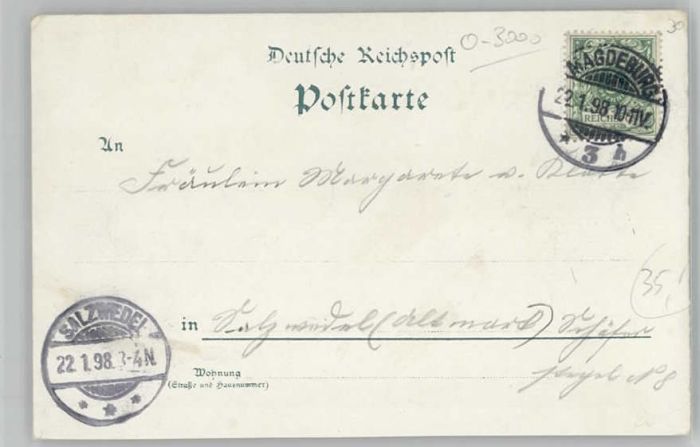 O-3000
30
Deutsche Reichspost
Postkarte
MAGDEBURG
22.1.98.10-11V.
* 3 h
REICHSPOST
An
Fräulein Margarete v.
35,
SALZWEDEL
22.1.98. 3-4N.
* * *
in Salzwedel (Altmark) Schäfer
stegel N 8
Wohnung
(Straße und Hausnummer)